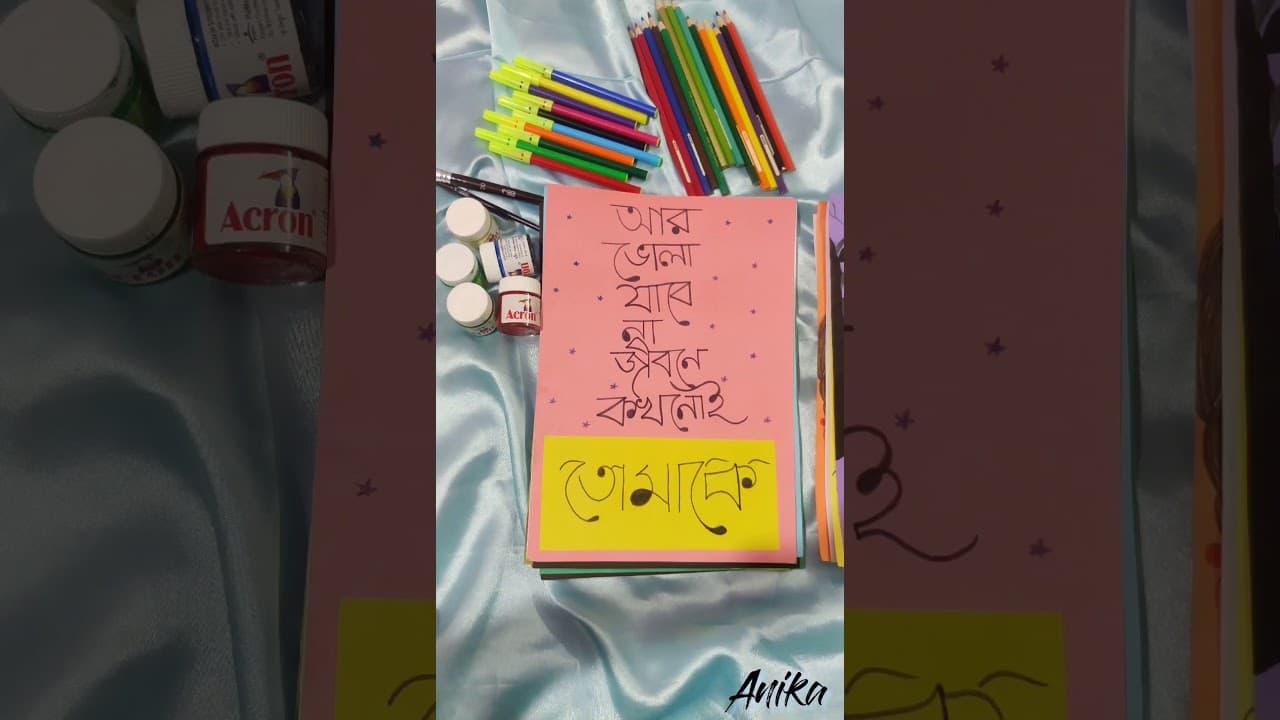 আর
ভোলা
যাবে
না
জীবনে
কখনোই
তোমাকে
Acron
Acron
Anika